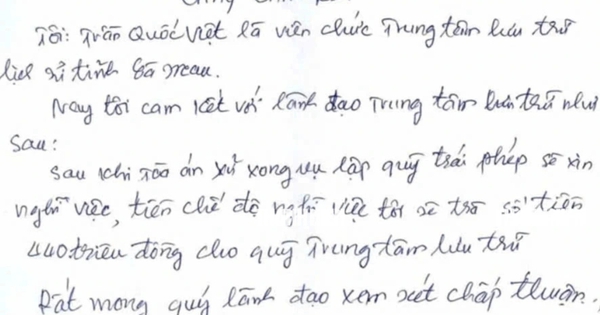 Tôi: Trần Quốc Việt là viên chức Trung tâm lưu trữ
lịch sử tỉnh Cà Mau.
Nay tôi cam kết với lãnh đạo Trung tâm lưu trữ như
Sau:
Sau khi Tòa án xử xong vụ lập quỹ trái phép sẽ xin
nghỉ việc, tiền chế độ nghỉ việc tôi sẽ trả số tiền
440 triệu đồng cho quỹ Trung tâm lưu trữ
Rất mong quý lãnh đạo xem xét chấp thuận.